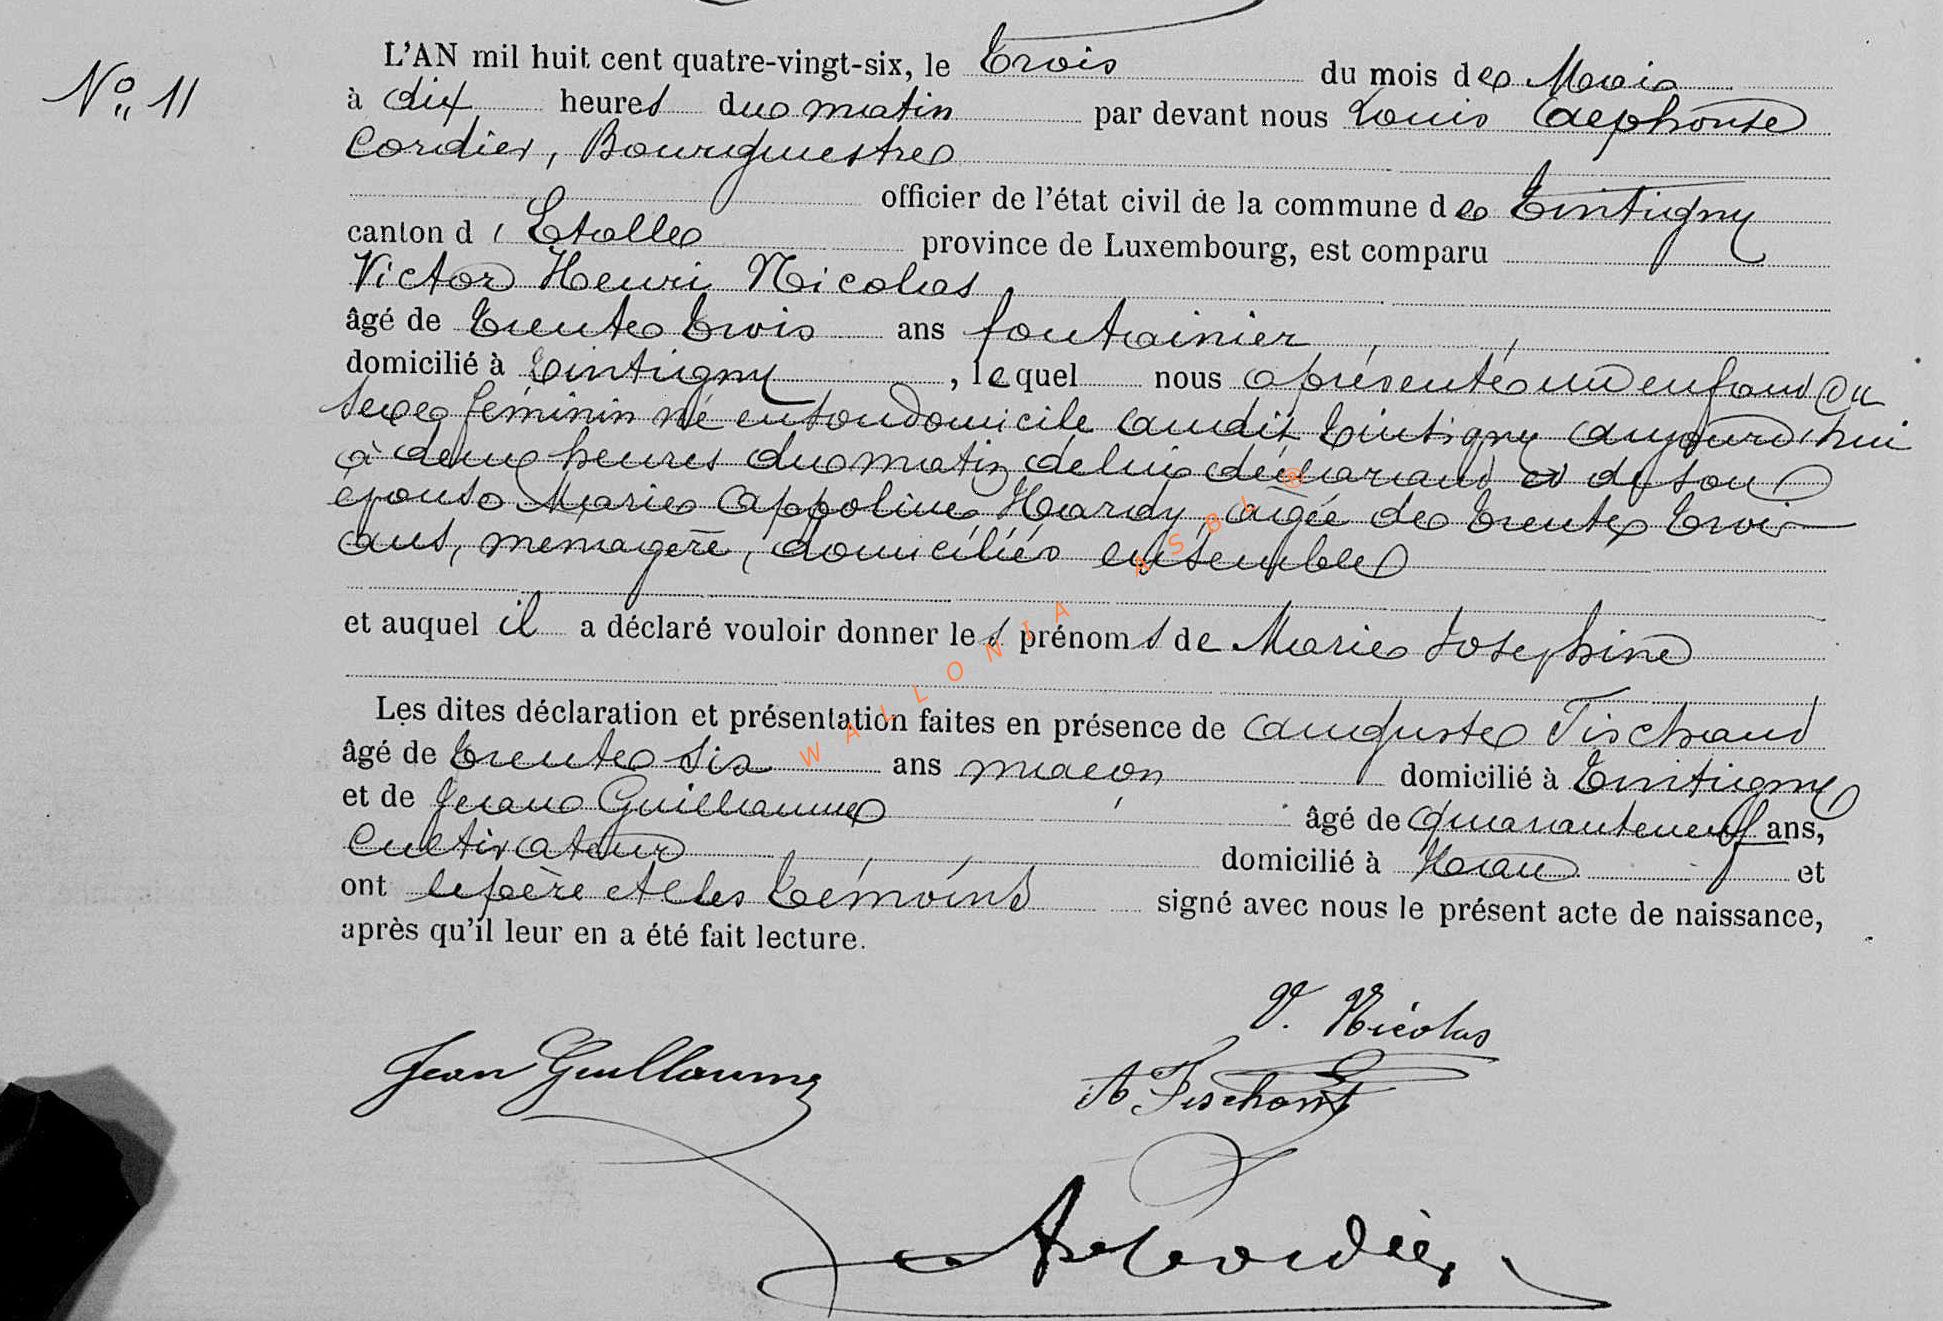 N° 11
L'AN mil huit cent quatre-vingt-six, le Trois du mois de Mai
à dix heures du matin par devant nous Louis Alphonse
Cordier, Bourgmestre
officier de l'état civil de la commune de Tintigny
canton d'Etalle province de Luxembourg, est comparu
Victor Henri Nicolas
âgé de Trente trois ans fontainier
domicilié à Tintigny, lequel nous a présenté un enfant du
sexe féminin né en son domicile audit Tintigny aujourd'hui
à deux heures du matin de lui déclarant et de son
épouse Marie Appoline Hardy, âgée de trente trois
ans, ménagère, domiciliés ensemble
et auquel il a déclaré vouloir donner les prénoms de Marie Josephine
Les dites déclaration et présentation faites en présence de Auguste Tischant
âgé de trente six ans maçon domicilié à Tintigny
et de Jean Guillaume âgé de quarante neuf ans,
Cultivateur domicilié à Han et
ont le père et les témoins signé avec nous le présent acte de naissance,
après qu'il leur en a été fait lecture.
V. Nicolas
Jean Guillaume
A Tischant
A Cordier
WALLONIA ASBL ®